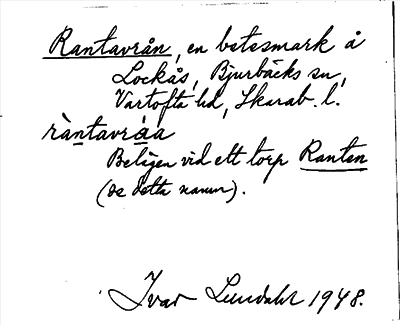 Rantavrån, en betesmark å
Lockås, Bjurbäcks sn,
Vartofta hd, Skarab. l.
ràntavráa
Belägen vid ett torp Ranten
(se detta namn).
Ivar Lundahl 1948.